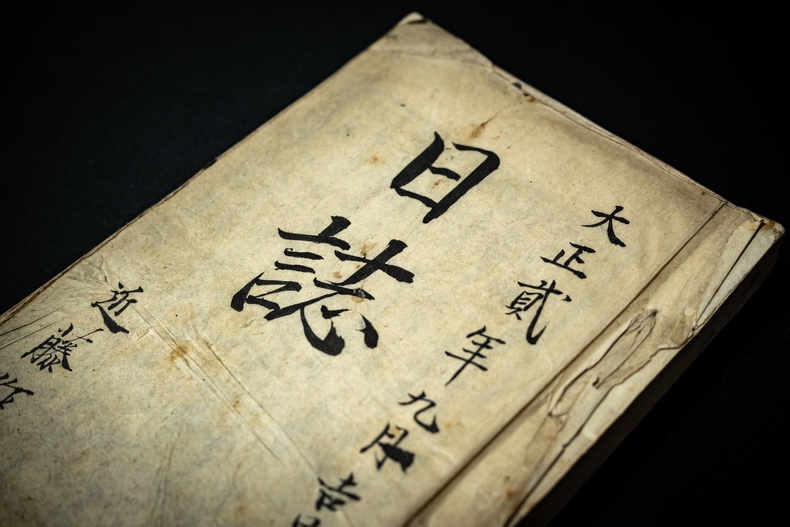 大正貳年九月吉
日誌
近藤作